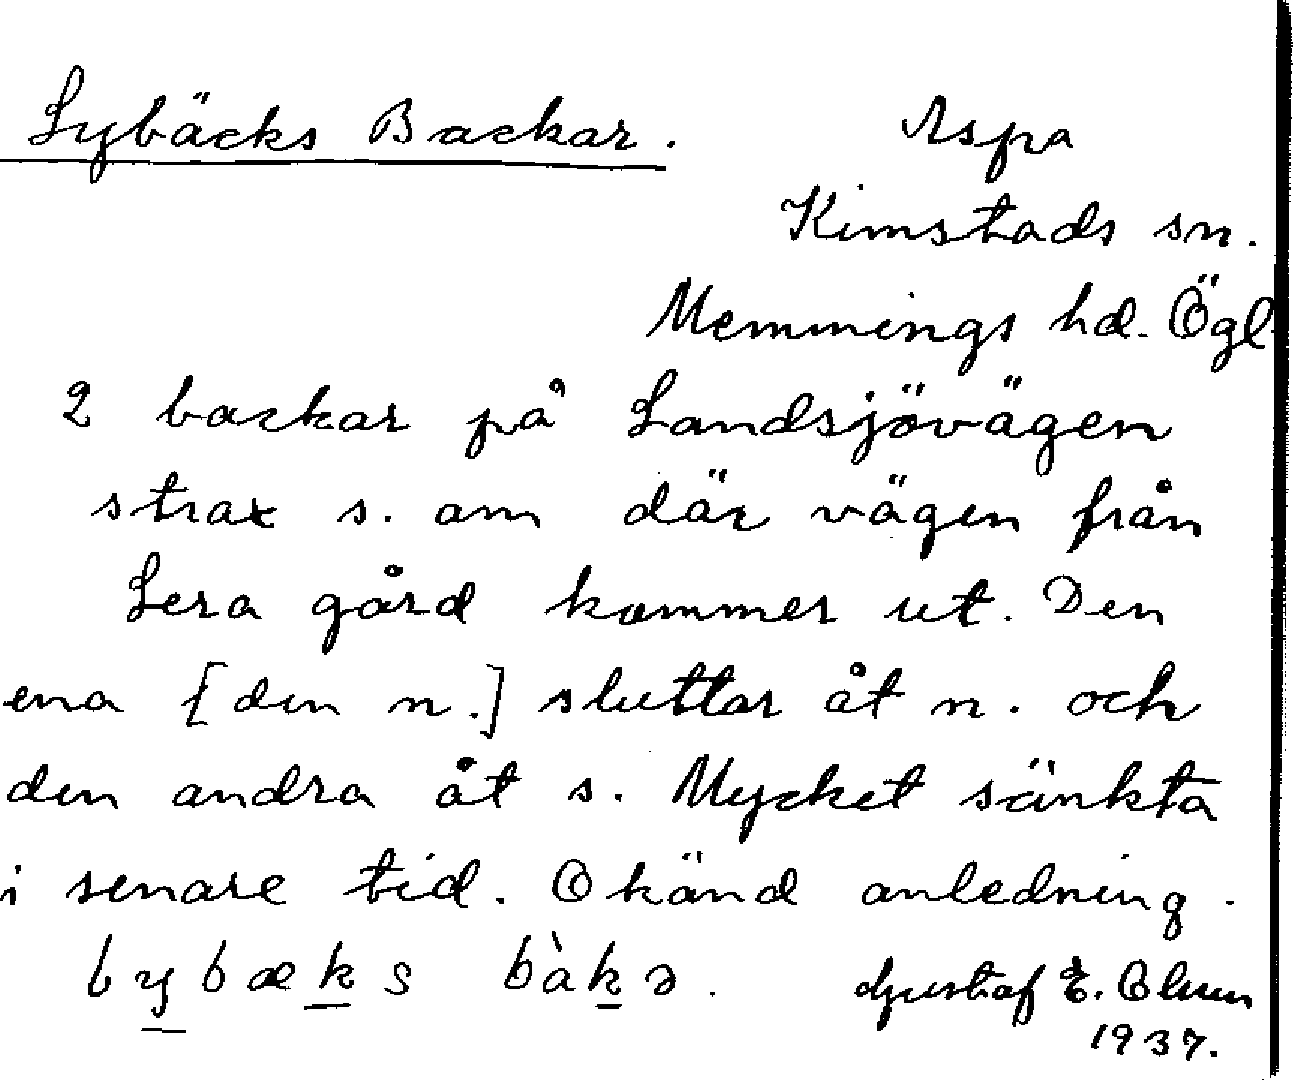 Lybäcks Backar. Aspa
Kimstads sn.
Memmings hd. Ögl.
2 backar på Landsjövägen
strax s. om där vägen från
Lera gård kommer ut. Den
ena [den n.] sluttar åt n. och
den andra åt s. Mycket sänkta
i senare tid. Okänd anledning.
lybæks bàkə. Gustaf E. Olsen
1937.